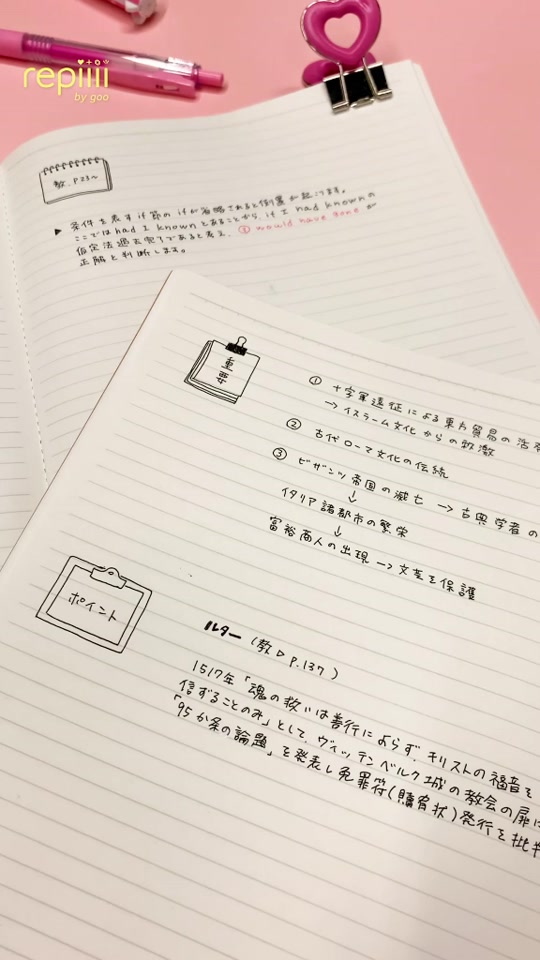 repiiii
by goo
教 P23〜
▶ 条件を表すif節のifが省略されると倒置が起こります。
ここではhad I knownとあることから、if I had knownの
仮定法過去完了であると考え、③ would have gone が
正解と判断します。
重要
① 十字軍遠征による東方貿易の活
→ イスラーム文化からの刺激
② 古代ローマ文化の伝統
③ ビザンツ帝国の滅亡 → 古典学者の
↓
イタリア諸都市の繁栄
↓
富裕商人の出現 → 文芸を保護
ポイント
ルター (教▷p.137)
1517年「魂の救いは善行によらず、キリストの福音を
信ずることのみ」として、ヴィッテンベルク城の教会の扉に
「95か条の論題」を発表し免罪符(贖宥状)発行を批判